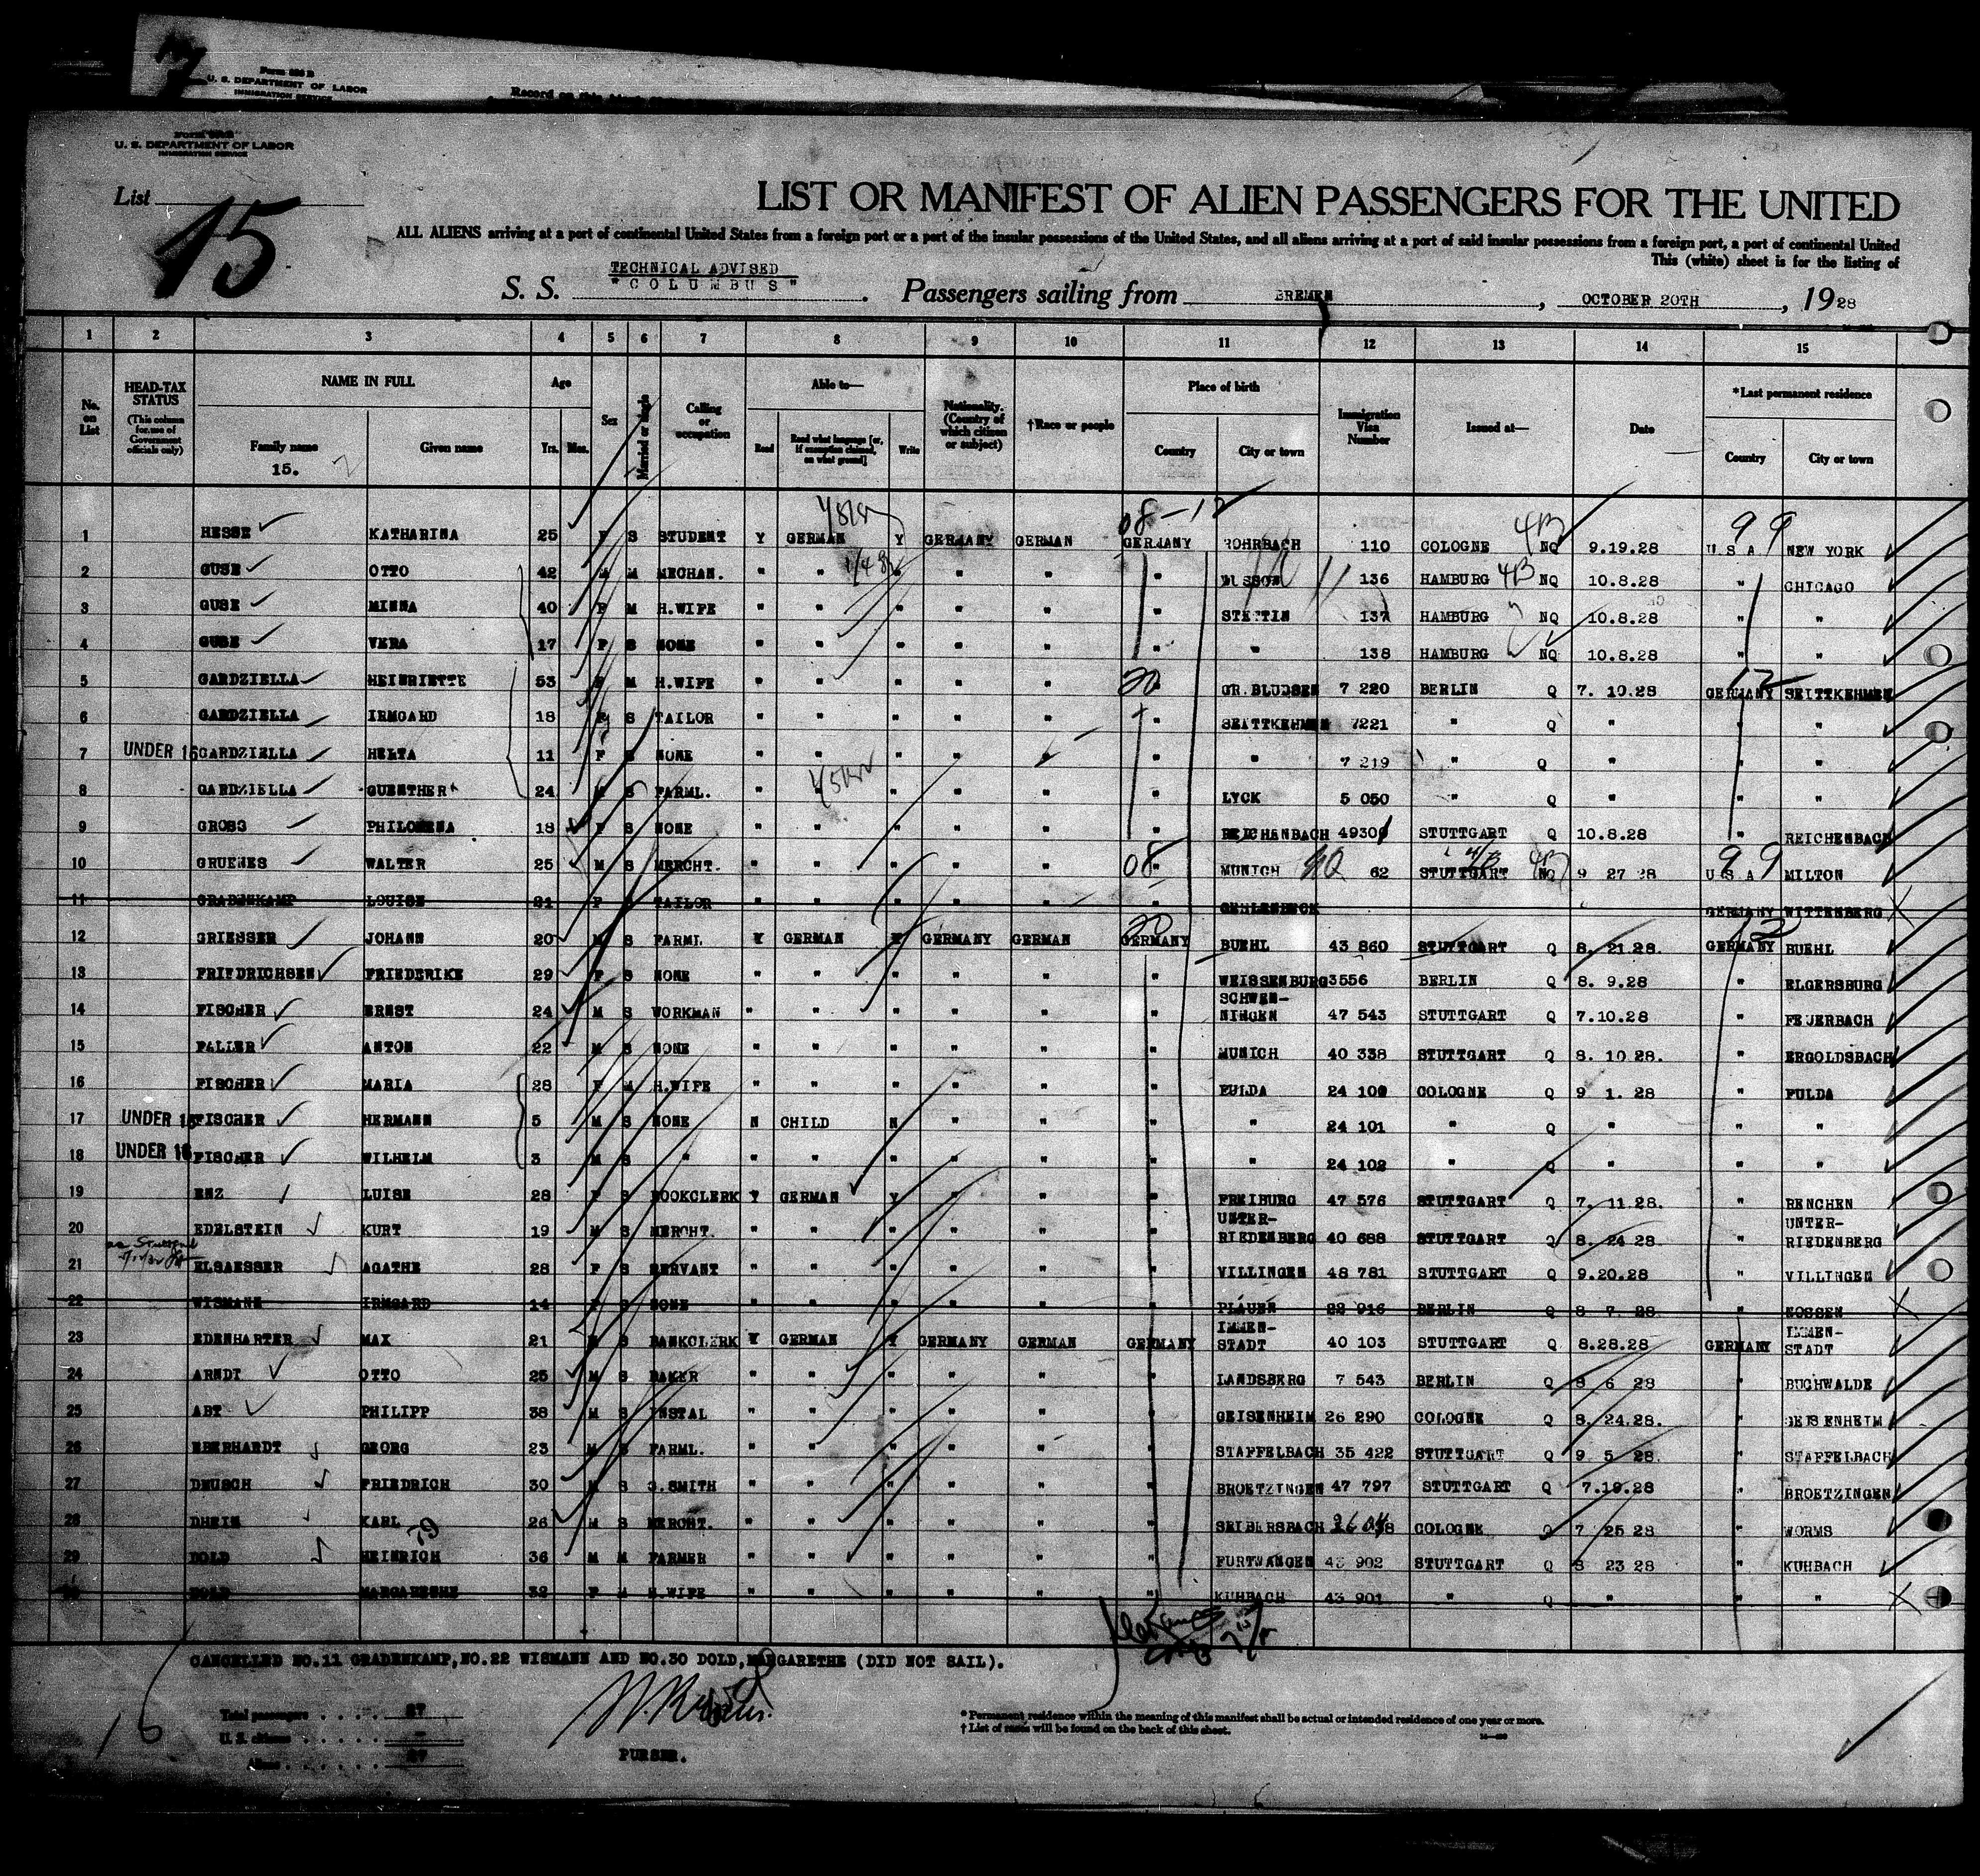 Form 500 B
U. S. DEPARTMENT OF LABOR
IMMIGRATION SERVICE
U. S. DEPARTMENT OF LABOR
IMMIGRATION SERVICE
List
15
LIST OR MANIFEST OF ALIEN PASSENGERS FOR THE UNITED
ALL ALIENS arriving at a port of continental United States from a foreign port or a port of the insular possessions of the United States, and all aliens arriving at a port of said insular possessions from a foreign port, a port of continental United
This (white) sheet is for the listing of
TECHNICAL ADVISED
S. S. "COLUMBUS". Passengers sailing from BREMEN, OCTOBER 20TH, 1928
1 2 3 4 5 6 7 8 9 10 11 12 13 14 15
No. on List
HEAD-TAX STATUS (This column for use of Government officials only)
NAME IN FULL Family name Given name
15.
Age Yrs. Mos.
Sex
Married or Single
Calling or occupation
Able to— Read Read what language [or, if exemption claimed, on what ground] Write
Nationality. (Country of which citizen or subject)
†Race or people
Place of birth Country City or town
Immigration Visa Number
Issued at—
Date
*Last permanent residence Country City or town
1 HESSE KATHARINA 25 F S STUDENT Y GERMAN Y GERMANY GERMAN GERMANY ROHRBACH 110 COLOGNE NQ 9.19.28 U S A NEW YORK
2 GUSE OTTO 42 M M MECHAN. " " " " " " 136 HAMBURG NQ 10.8.28 " CHICAGO
3 GUSE MINNA 40 F M H.WIFE " " " " " " STETTIN 137 HAMBURG NQ 10.8.28 " "
4 GUSE VERA 17 F S NONE " " " " " " " 138 HAMBURG NQ 10.8.28 " "
5 GARDZIELLA HEINRIETTE 53 F M H.WIFE " " " " " " GR.BLUDSEN 7 220 BERLIN Q 7. 10.28 GERMANY SEITTKEHMEN
6 GARDZIELLA IRMGARD 18 F S TAILOR " " " " " " SEATTKEHMEN 7221 " Q " " "
7 UNDER 16 GARDZIELLA HERTA 11 F S NONE " " " " " " " 7 219 " Q " " "
8 GARDZIELLA GUENTHER 24 M S FARML. " " " " " " LYCK 5 050 " Q " " "
9 GROSS PHILOMENA 18 F S NONE " " " " " " REICHENBACH 49301 STUTTGART Q 10.8.28 " REICHENBACH
10 GRUENES WALTER 25 M S MERCHT. " " " " " " MUNICH 62 STUTTGART NQ 9 27 28 U S A MILTON
11 GRADENKAMP LOUISE 21 F S TAILOR " " " " " " GEHLENBECK GERMANY WITTENBERG
12 GRIESSER JOHANN 20 M S FARML Y GERMAN Y GERMANY GERMAN GERMANY BUEHL 43 860 STUTTGART Q 8. 21.28. GERMANY BUEHL
13 FRIEDRICHSEN FRIEDERIKE 29 F S NONE " " " " " " WEISSENBURG 3556 BERLIN Q 8. 9.28 " ELGERSBURG
14 FISCHER ERNST 24 M S WORKMAN " " " " " " SCHWEN-
NINGEN 47 543 STUTTGART Q 7.10.28 " FEUERBACH
15 FALLER ANTON 22 M S NONE " " " " " " MUNICH 40 338 STUTTGART Q 8. 10 28. " ERGOLDSBACH
16 FISCHER MARIA 28 F M H.WIFE " " " " " " FULDA 24 100 COLOGNE Q 9 1. 28 " FULDA
17 UNDER 16 FISCHER HERMANN 5 M S NONE N CHILD N " " " " 24 101 " Q " " "
18 UNDER 16 FISCHER WILHELM 3 M S " " " " " " " " 24 102 " Q " " "
19 ENZ LUISE 28 F S BOOKCLERK Y GERMAN Y " " " FREIBURG 47 576 STUTTGART Q 7. 11.28. " RENCHEN
20 EDELSTEIN KURT 19 M S MERCHT. " " " " " " UNTER-
RIEDENBERG 40 688 STUTTGART Q 8. 24 28. " UNTER-
RIEDENBERG
21 ELSAESSER AGATHE 28 F S SERVANT " " " " " " VILLINGEN 48 781 STUTTGART Q 9.20.28 " VILLINGEN
22 WISMANN IRMGARD 14 F S NONE " " " " " " PLAUEN 22 916 BERLIN Q 8 7. 28 " NOSSEN
23 EDENHARTER MAX 21 M S BANKCLERK Y GERMAN Y GERMANY GERMAN GERMANY IMMEN-
STADT 40 103 STUTTGART Q 8.28.28 GERMANY IMMEN-
STADT
24 ARNDT OTTO 25 M S BAKER " " " " " " LANDSBERG 7 543 BERLIN Q 8 6 28 " BUCHWALDE
25 ABT PHILIPP 38 M S INSTAL " " " " " " GEISENHEIM 26 290 COLOGNE Q 8. 24.28. " GEISENHEIM
26 EBERHARDT GEORG 23 M S FARML. " " " " " " STAFFELBACH 35 422 STUTTGART Q 9 5 28. " STAFFELBACH
27 DEUSCH FRIEDRICH 30 M S G.SMITH " " " " " " BROETZINGEN 47 797 STUTTGART Q 7.19.28 " BROETZINGEN
28 DHEIN KARL 26 M S MERCHT. " " " " " " SEIBERSBACH COLOGNE Q 7 25 28 " WORMS
29 DOLD HEINRICH 36 M M FARMER " " " " " " FURTWANGEN 43 902 STUTTGART Q 8 23 28 " KUHBACH
30 DOLD MARGARETHE 32 F M H.WIFE " " " " " " KUHBACH 43 901 " Q " " "
CANCELLED NO.11 GRADENKAMP, NO.22 WISMANN AND NO.30 DOLD, MARGARETHE (DID NOT SAIL).
Total passengers . . . . 27
U. S. citizens . . . . . –
Aliens . . . . . . 27
PURSER.
* Permanent residence within the meaning of this manifest shall be actual or intended residence of one year or more.
† List of races will be found on the back of this sheet.